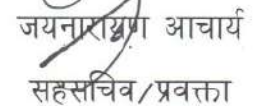 जयनारायण आचार्य
सहसचिव/प्रवक्ता